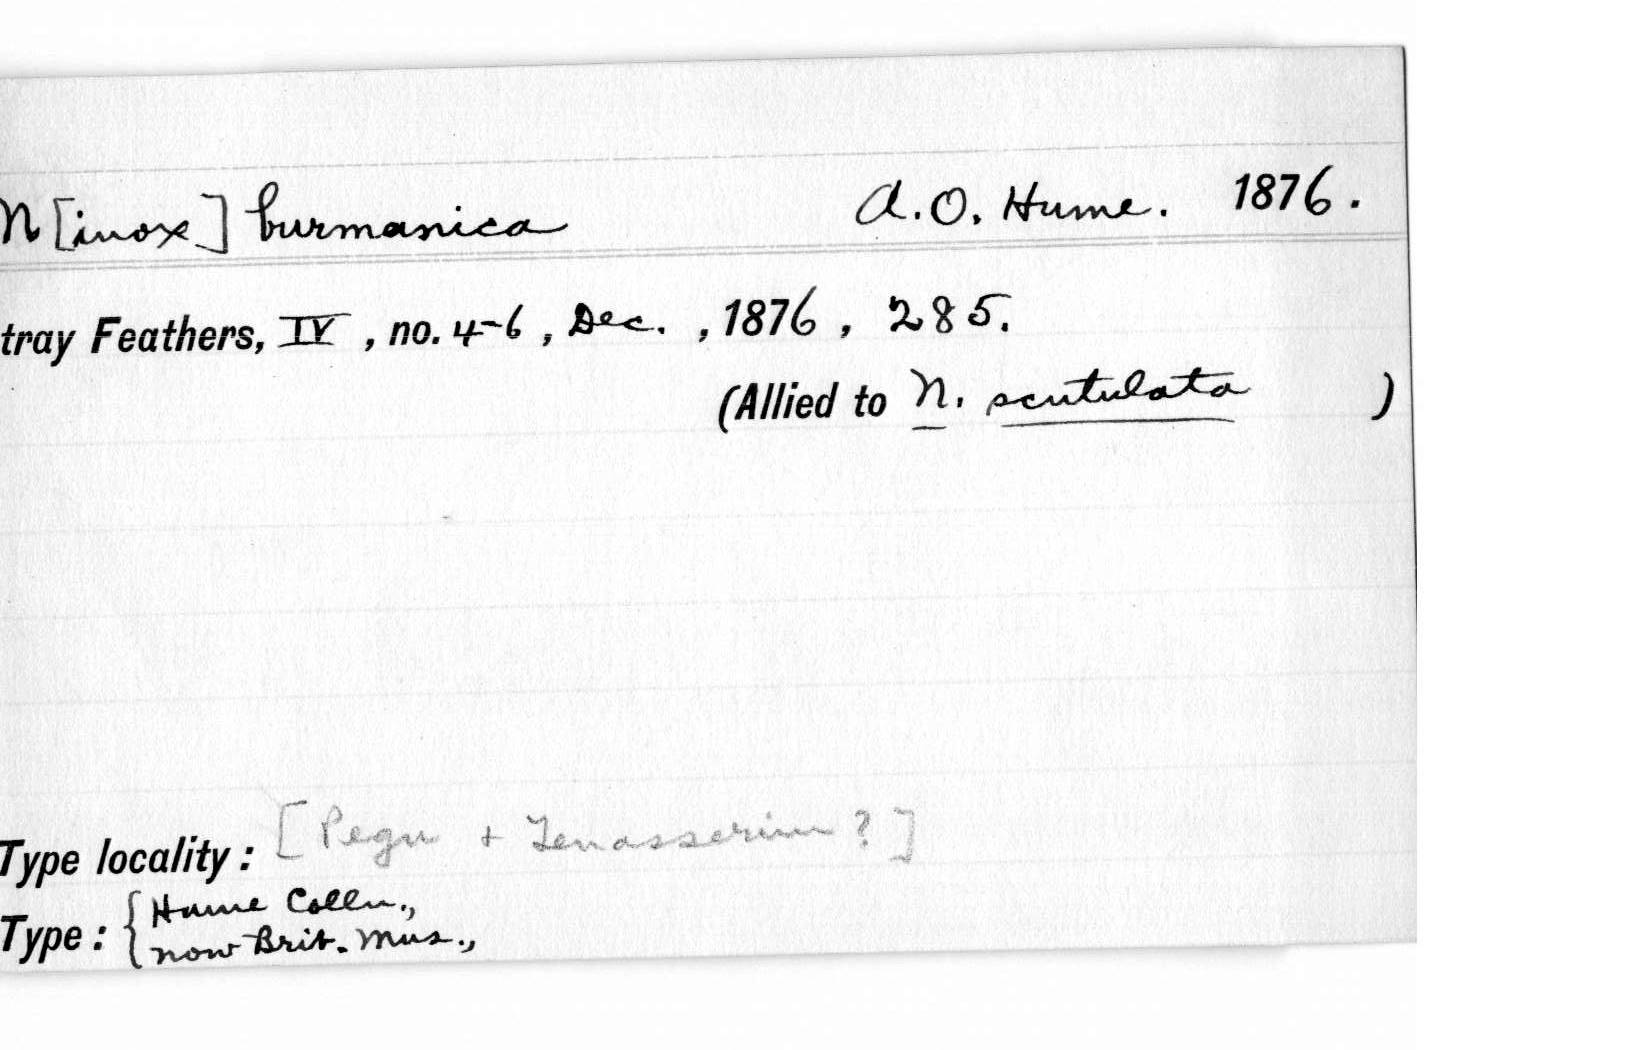 N[inox] burmanica A. O. Hume. 1876.
tray Feathers, IV, no. 4-6, Dec. , 1876, 285.
(Allied to N. scutulata )
Type locality: [Pegu + Tenasserim?]
Type: { Hume Colln.,
now Brit. Mus.,